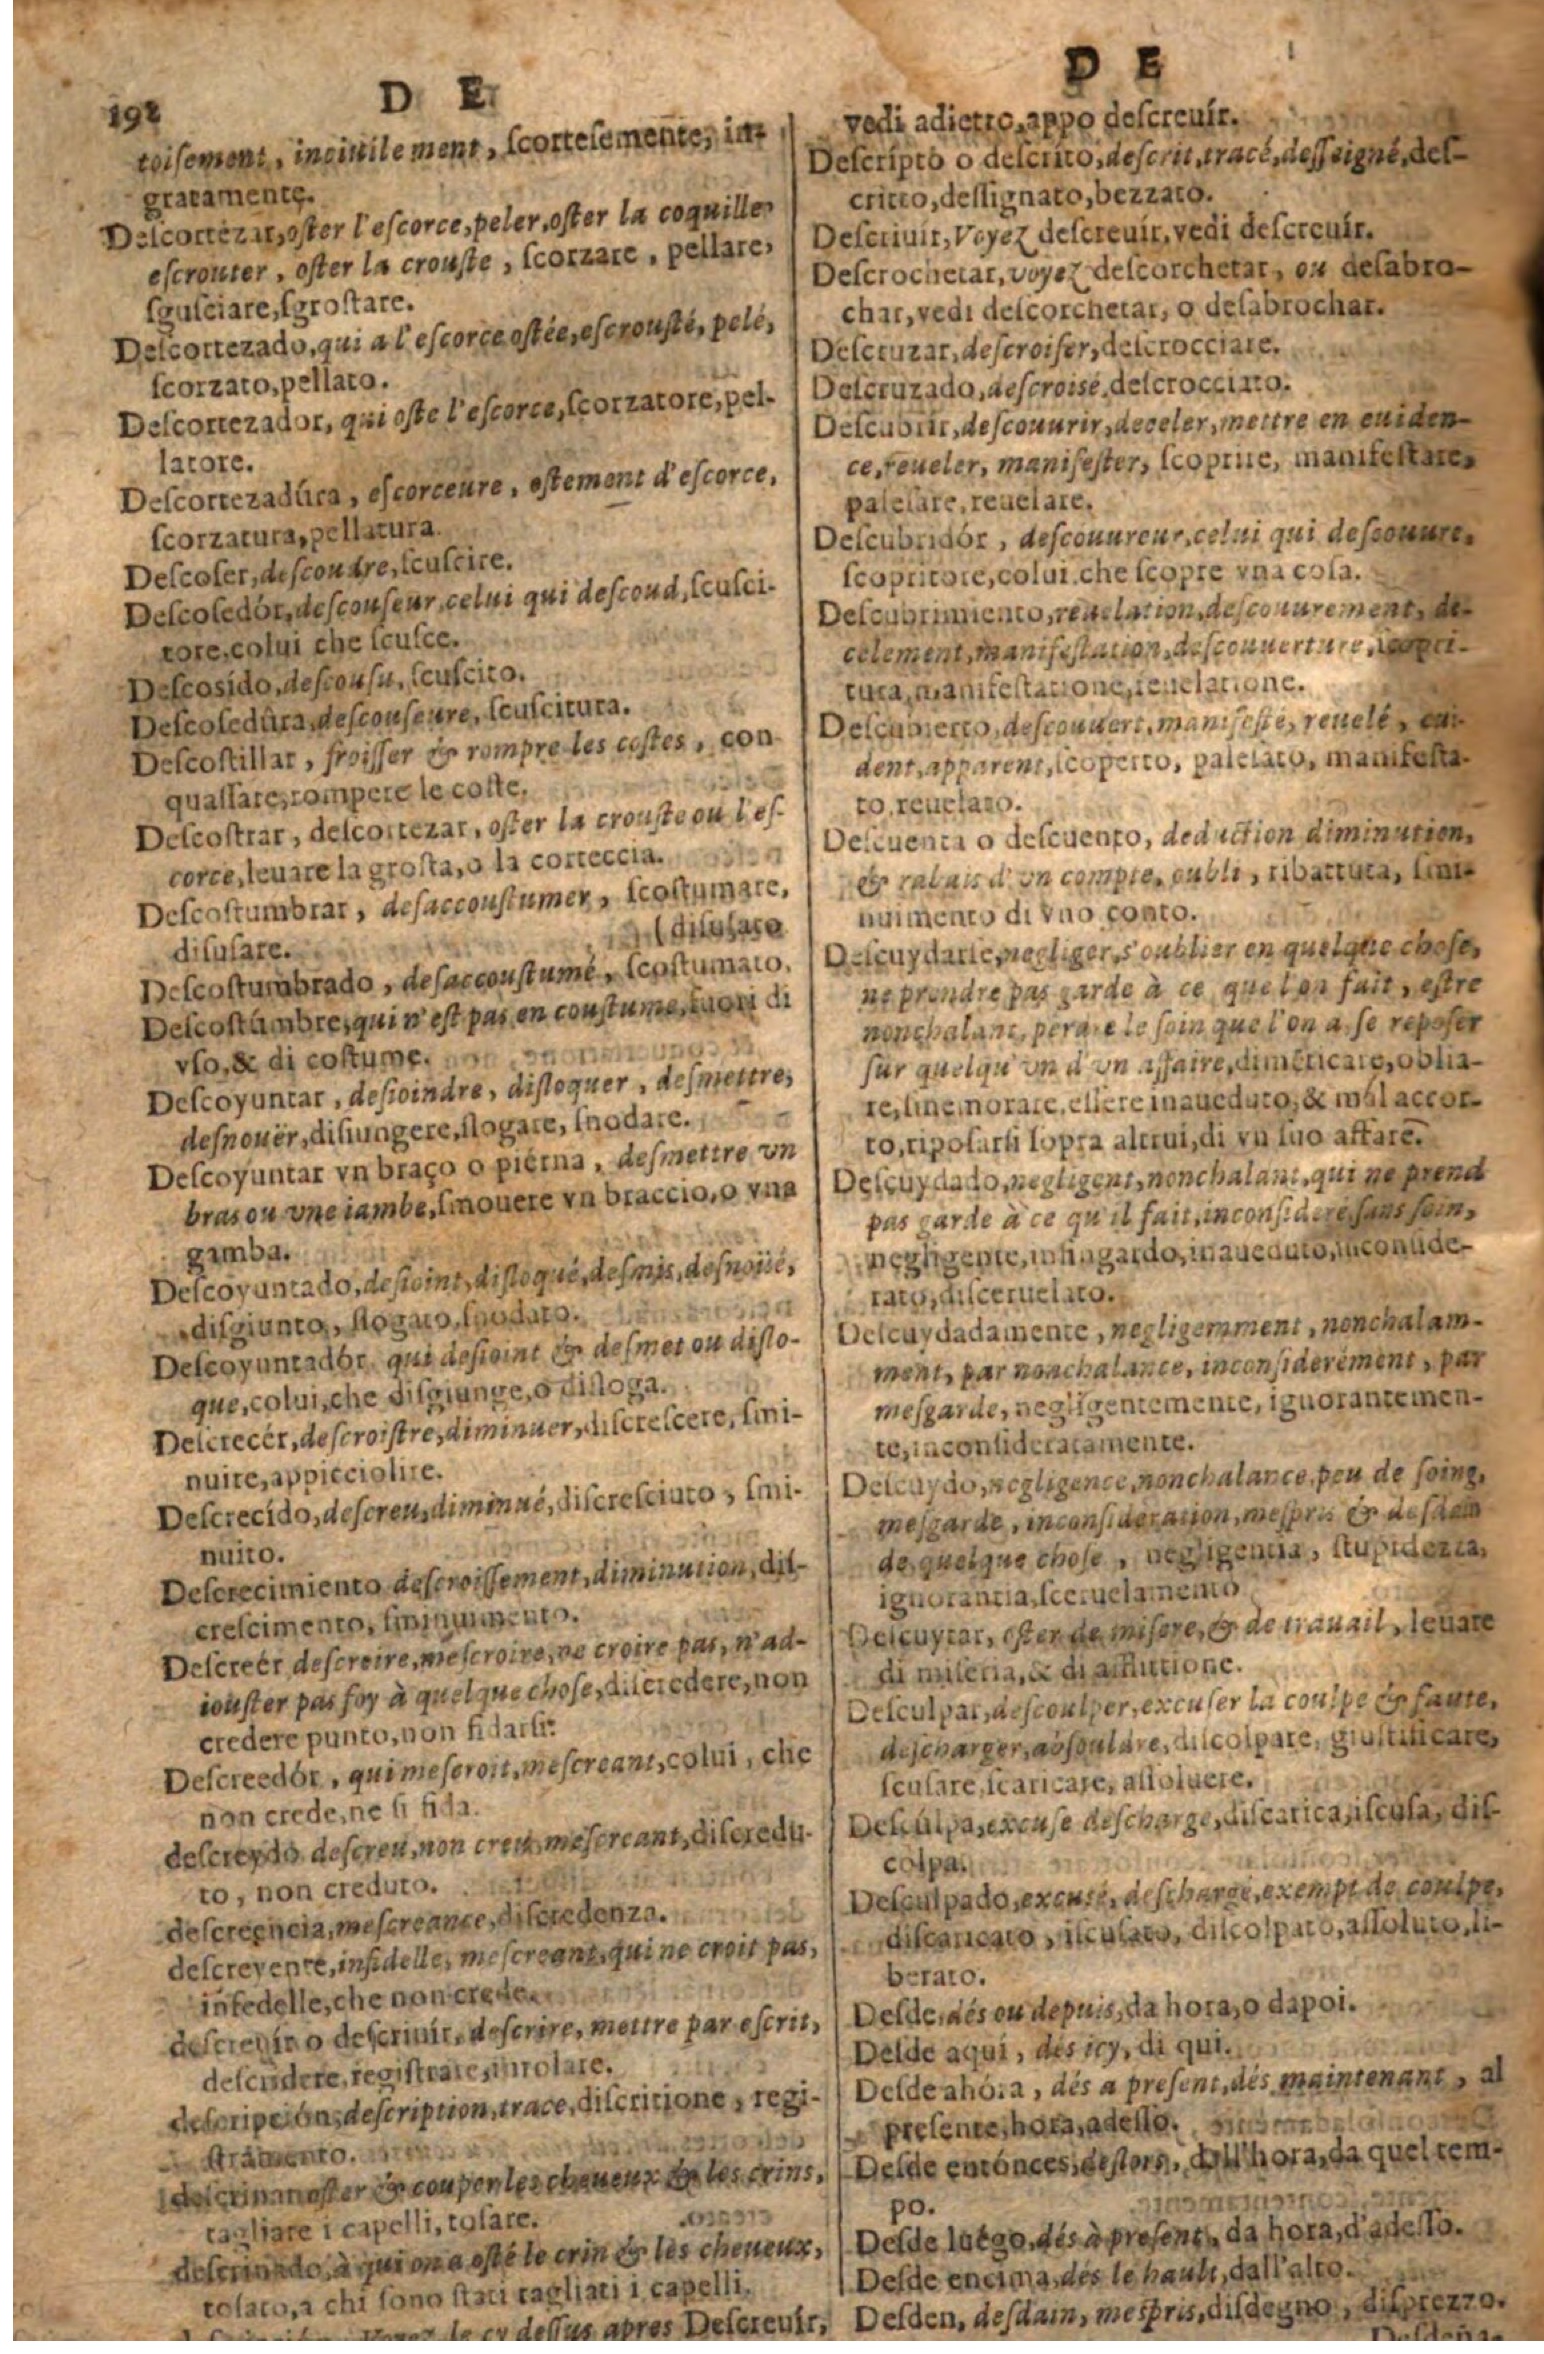 192
D E
toisement, inciuilement, ſcorteſemente, in-
gratamente.
Deſcortezar, oſter l'eſcorce, peler, oſter la coquille,
eſcrouter, oſter la crouſte, ſcorzare, pellare,
ſguſciare, ſgroſtare.
Deſcortezado, qui a l'eſcorce oſtée, eſcrouſté, pelé,
ſcorzato, pellato.
Deſcortezador, qui oſte l'eſcorce, ſcorzatore, pel-
latore.
Deſcortezadûra, eſcorceure, oſtement d'eſcorce,
ſcorzatura, pellatura.
Deſcoſer, deſcoudre, ſcuſcire.
Deſcoſedór, deſcouſeur, celui qui deſcoud, ſcuſci-
tore, colui che ſcuſce.
Deſcosído, deſcouſu, ſcuſcito.
Deſcoſedûra, deſcouſeure, ſcuſcitura.
Deſcoſtillar, froiſſer & rompre les coſtes, con
quaſſare, rompere le coſte.
Deſcoſtrar, deſcortezar, oſter la crouſte ou l'eſ-
corce, leuare la groſta, o la corteccia.
Deſcoſtumbrar, deſaccouſtumer, ſcoſtumare,
diſuſare. (diſuſato
Deſcoſtumbrado, deſaccouſtumé, ſcoſtumato,
Deſcoſtúmbre, qui n'eſt pas en couſtume, fuori di
vſo, & di coſtume.
Deſcoyuntar, deſioindre, diſloquer, deſmettre,
deſnouër, diſiungere, ſlogare, ſnodare.
Deſcoyuntar vn braço o piérna, deſmettre vn
bras ou vne iambe, ſmouere vn braccio, o vna
gamba.
Deſcoyuntado, deſioint, diſloqué, deſmis, deſnoüé,
diſgiunto, ſlogato, ſnodato.
Deſcoyuntadór, qui deſioint & deſmet ou diſlo-
que, colui, che diſgiunge, o diſloga.
Deſcrecér, deſcroiſtre, diminuer, diſcreſcere, ſmi-
nuire, appicciolire.
Deſcrecído, deſcreu, diminué, diſcreſciuto, ſmi-
nuito.
Deſcrecimiento deſcroiſſement, diminution, diſ-
creſcimento, ſminuimento.
Deſcreér deſcroire, meſcroire, ne croire pas, n'ad-
iouſter pas foy à quelque choſe, diſcredere, non
credere punto, non fidarſi.
Deſcreedór, qui meſcroit, meſcreant, colui, che
non crede, ne ſi fida.
deſcreydo deſcreu, non creu, meſcreant, diſcredu-
to, non creduto.
deſcreencia, meſcreance, diſcredenza.
deſcreyente, infidelle, meſcreant, qui ne croit pas,
infedelle, che non crede.
deſcreuír o deſcriuir, deſcrire, mettre par eſcrit,
regiſtrare,
deſcripción, deſcription, trace, diſcritione, regi-
ſtramento.
deſcrinar oſter & couper les cheueux & les crins,
tagliare i capelli, toſare.
deſcrinado, à qui on a oſté le crin & les cheueux,
toſato, a chi ſono ſtati tagliati i capelli.
Voyez le cy deſſus apres Deſcreuír,
D E
vedi adietro, appo deſcreuír.
Deſcrípto o deſcríto, deſcrit, tracé, deſſeigné, deſ-
critto, deſſignato, bezzato.
Deſcriuir, Voyez deſcreuír, vedi deſcreuír.
Deſcrochetar, voyez deſcorchetar, ou deſabro-
char, vedi deſcorchetar, o deſabrochar.
Deſcruzar, deſcroiſer, deſcrocciare.
Deſcruzado, deſcroisé, deſcrocciato.
Deſcubrir, deſcouurir, deceler, mettre en euiden-
ce, reueler, manifeſter, ſcoprire, manifeſtare,
paleſare, reuelare.
Deſcubridór, deſcouureur, celui qui deſcouure,
ſcopritore, colui che ſcopre vna coſa.
Deſcubrimiento, reuelation, deſcouurement, de-
celement, manifeſtation, deſcouuerture, ſcopri-
tura, manifeſtatione, reuelatione.
Deſcubierto, deſcouuert, manifeſté, reuelé, eui-
dent, apparent, ſcoperto, paleſato, manifeſta-
to, reuelato.
Deſcuenta o deſcuento, deduction diminution,
& rabais d'vn compte, oubli, ribattuta, ſmi-
nuimento di vno conto.
Deſcuydarſe, negliger, s'oublier en quelque choſe,
ne prendre pas garde à ce que l'on fait, eſtre
nonchalant, perdre le ſoin que l'on a, ſe repoſer
ſur quelqu'vn d'vn affaire, dimẽticare, oblia-
re, ſmemorare, eſſere inaueduto, & mal accor-
to, ripoſarſi ſopra altrui, di vn ſuo affare.
Deſcuydado, negligent, nonchalant, qui ne prend
pas garde à ce qu'il fait, inconſideré, ſans ſoin,
negligente, infingardo, inaueduto, inconſide-
rato, diſceruelato.
Deſcuydadamente, negligemment, nonchalam-
ment, par nonchalance, inconſiderément, par
meſgarde, negligentemente, ignorantemen-
te, inconſideratamente.
Deſcuydo, negligence, nonchalance, peu de ſoing,
meſgarde, inconſideration, meſpris & deſdain
de quelque choſe, negligentia, ſtupidezza,
ignorantia, ſceruelamento
Deſcuytar, oſter de miſere, & de trauail, leuare
di miſeria, & di afflittione.
Deſculpar, deſcoulper, excuſer la coulpe & faute,
deſcharger, abſouldre, diſcolpare, giuſtificare,
ſcuſare, ſcaricare, aſſoluere.
Deſcúlpa, excuſe deſcharge, diſcarica, iſcuſa, diſ-
colpa.
Deſculpado, excuſé, deſchargé, exempt de coulpe,
diſcaricato, iſcuſato, diſcolpato, aſſoluto, li-
berato.
Deſde, dés ou depuis, da hora, o dapoi.
Deſde aquí, dés icy, di qui.
Deſde ahóra, dés a preſent, dés maintenant, al
preſente, hora, adeſſo.
Deſde entónces, deſlors, dall'hora, da quel tem-
po.
Deſde luégo, dés à preſent, da hora, d'adeſſo.
Deſde encima, dés le hault, dall'alto.
Deſden, deſdain, meſpris, diſdegno, diſprezzo.
Deſdeña-